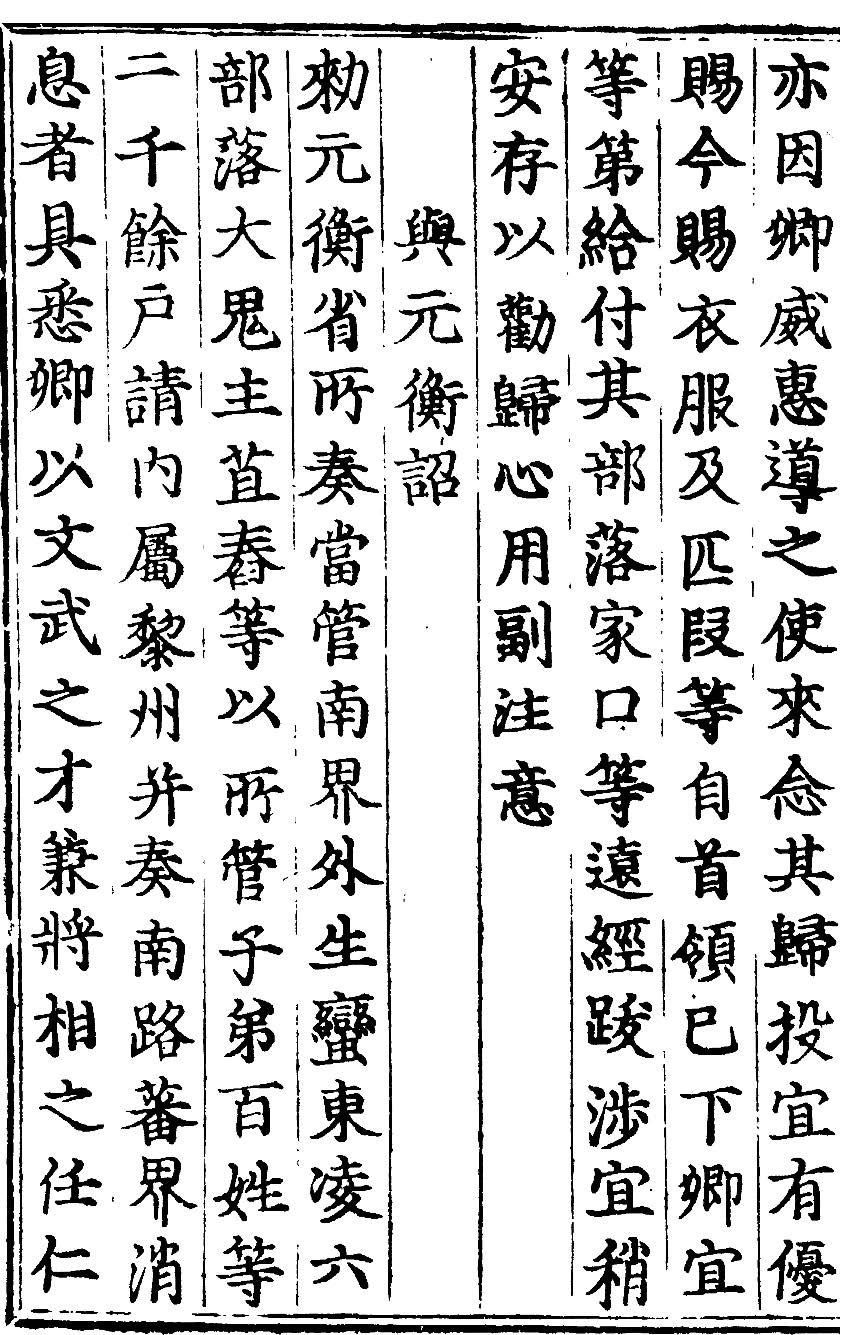 亦因卿威惠導之使來念其歸投宜有優
賜今賜衣服及匹段等自首領已下卿宜
等第給付其部落家口等遠經跋涉宜稍
安存以勸歸心用副注意
與元衡詔
勑元衡省所奏當管南界外生蠻東凌六
部落大鬼主苴舂等以所管子弟百姓等
二千餘戶請内屬黎州并奏南路蕃界消
息者具悉卿以文武之才兼將相之任仁